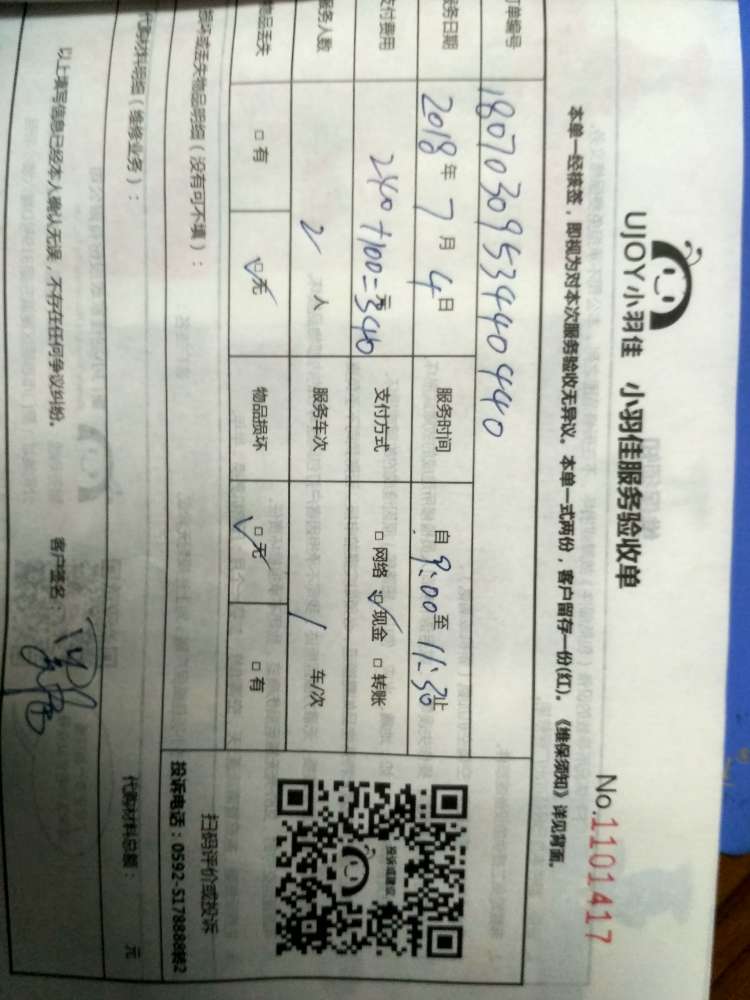 UJOY小羽佳 小羽佳服务验收单
No.1101417
本单一经核签，即视为对本次服务验收无异议。本单一式两份，客户留存一份(红)。《维保须知》详见背面。
订单编号 18070309534440440
服务日期 2018年7月4日 服务时间 自9:00至11:30止
支付费用 240+100=340元 支付方式 □网络 ☑现金 □转账
服务人数 2人 服务车次 1车/次
物品丢失 □有 ☑无 物品损坏 ☑无 □有
损坏或丢失物品明细（没有可不填）：
代购材料明细（维修业务）：
代购材料总额： 元
以上填写信息已经本人确认无误，不存在任何争议纠纷。 客户签名：
投诉或建议
扫码评价或投诉
投诉电话：0592-5178888转2